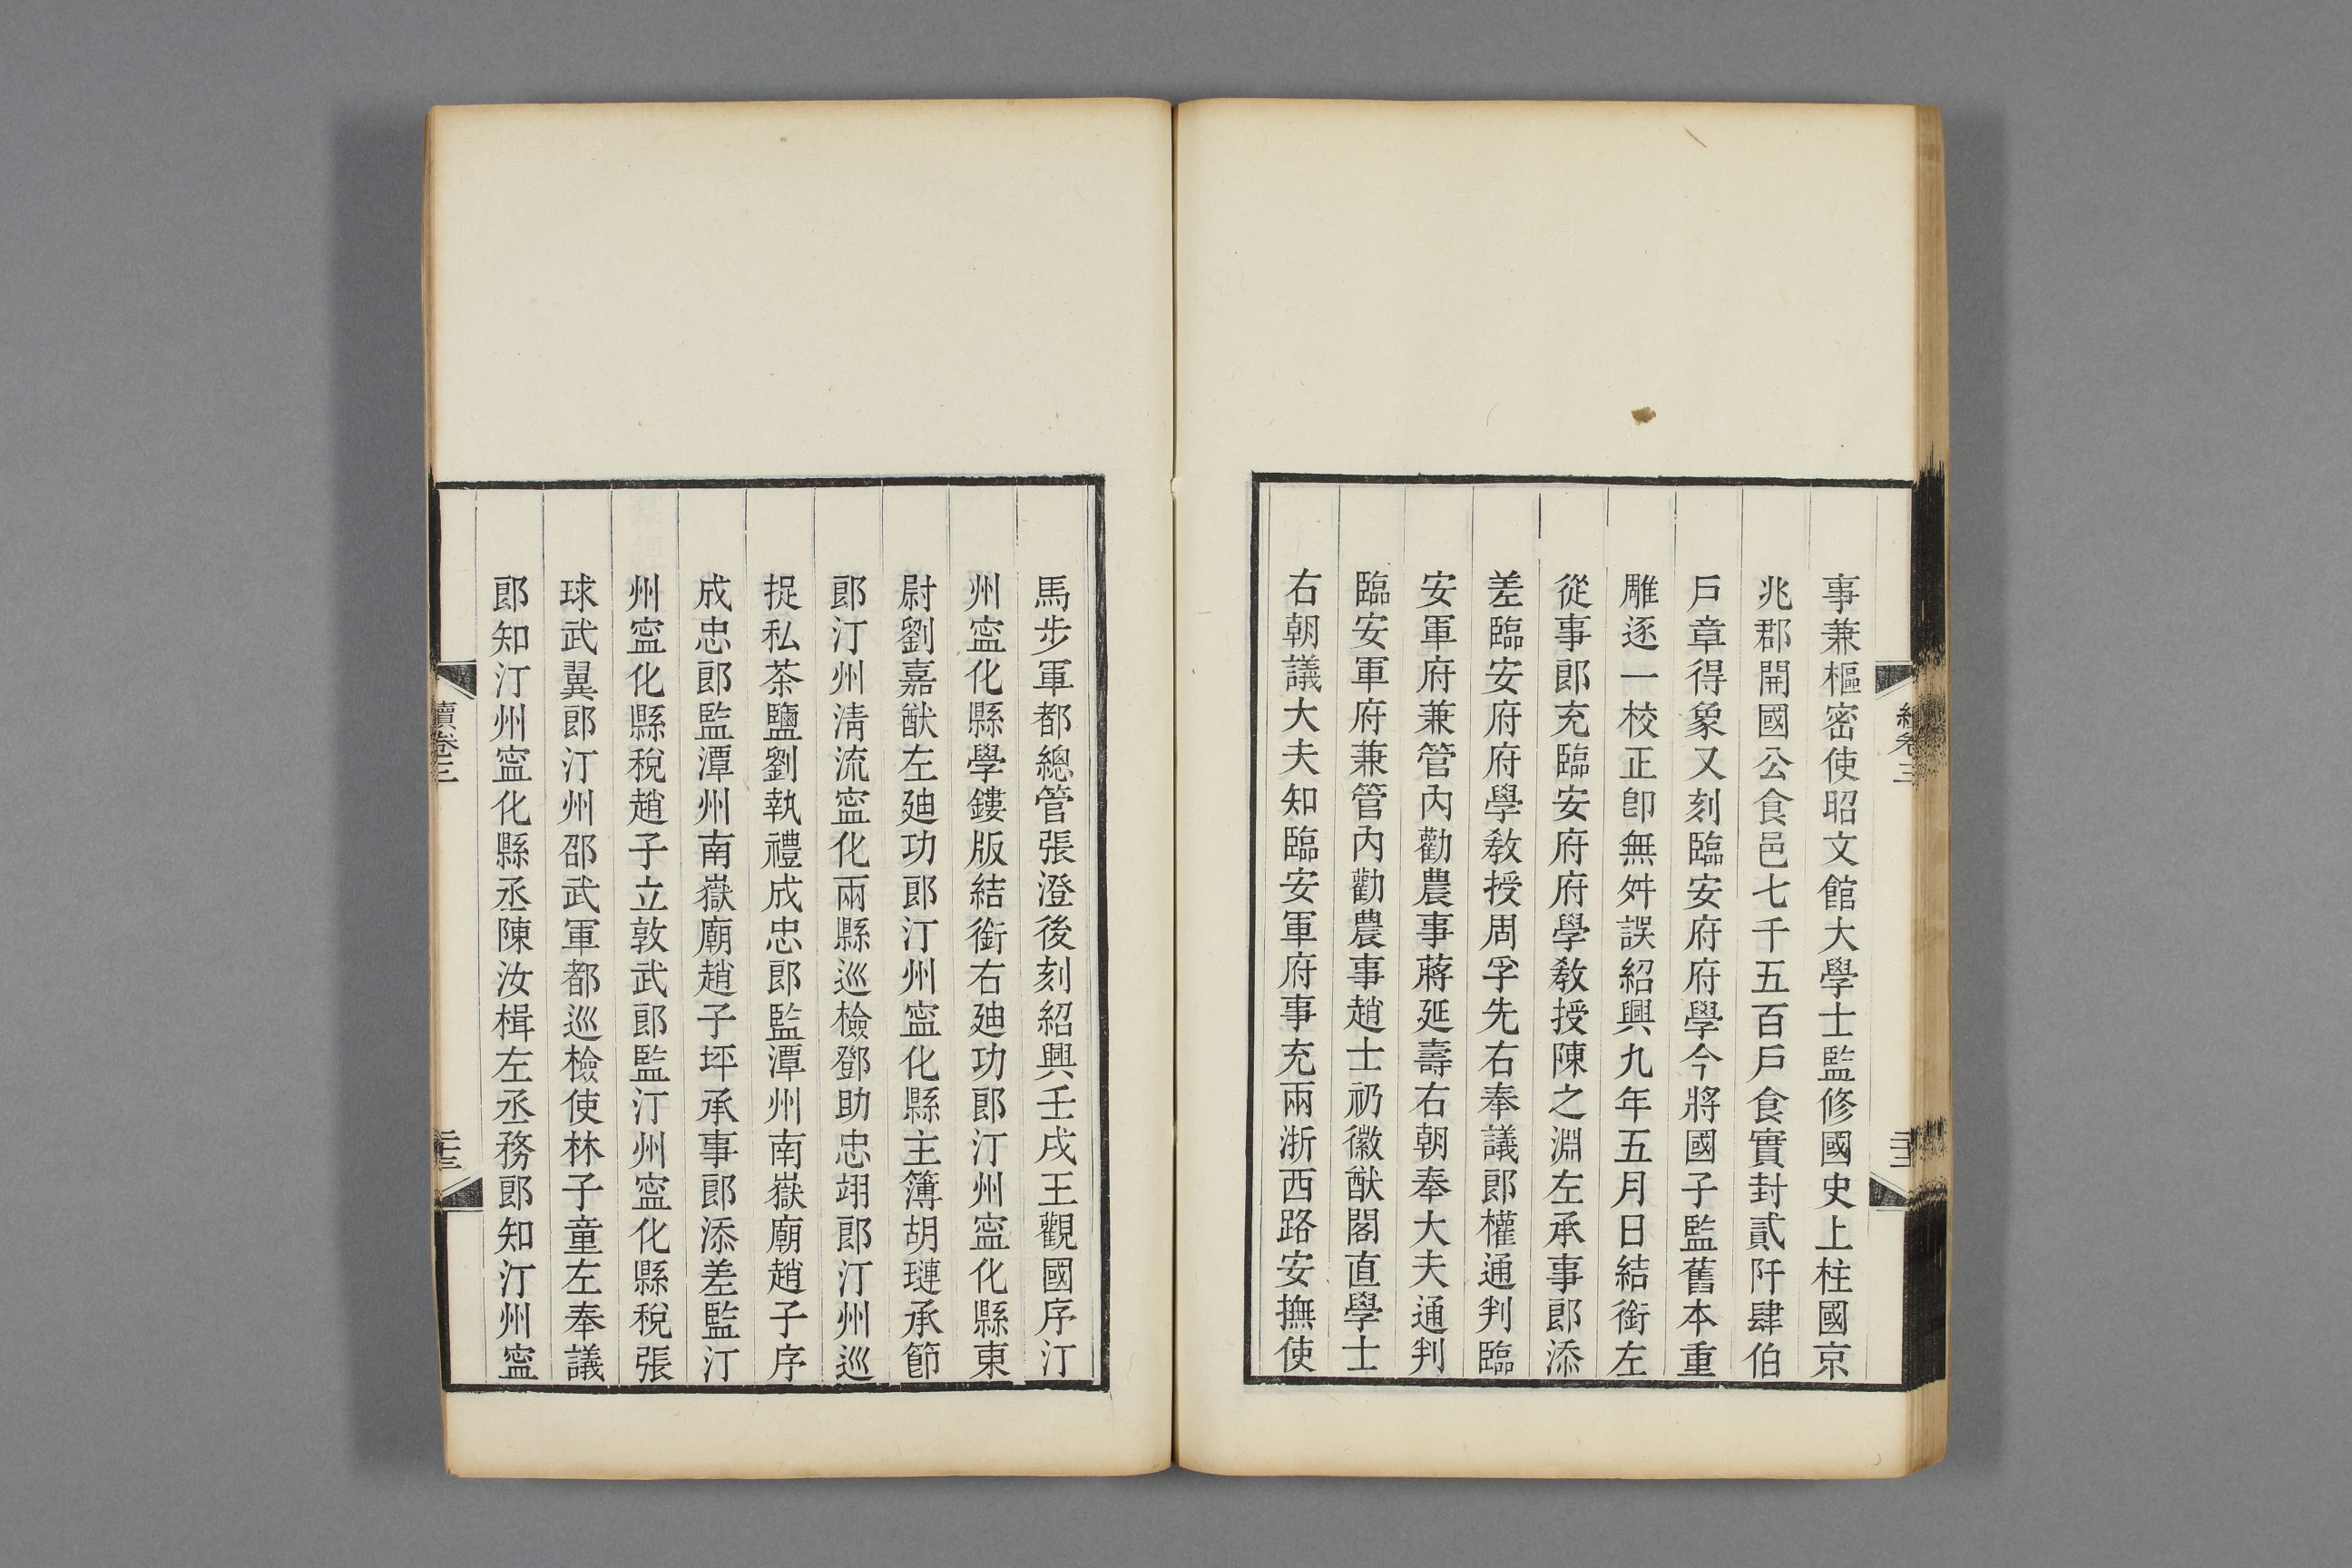 事兼樞密使昭文館大學士監修國史上柱國京
兆郡開國公食邑七千五百戶食實封貳阡肆伯
戶章得象又刻臨安府府學今將國子監舊本重
雕逐一校正卽無舛誤紹興九年五月日結銜左
從事郎充臨安府府學敎授陳之淵左承事郎添
差臨安府府學敎授周孚先右奉議郎權通判臨
安軍府兼管內勸農事蔣延壽右朝奉大夫通判
臨安軍府兼管內勸農事趙士礽徽猷閣直學士
右朝議大夫知臨安軍府事充兩浙西路安撫使
馬步軍都總管張澄後刻紹興壬戌王觀國序汀
州寍化縣學鏤版結銜右廸功郎汀州寍化縣東
尉劉嘉猷左廸功郎汀州寍化縣主簿胡璉承節
郎汀州淸流寍化兩縣巡檢鄧助忠翊郎汀州巡
捉私茶鹽劉執禮成忠郎監潭州南嶽廟趙子序
成忠郎監潭州南嶽廟趙子坪承事郎添差監汀
州寍化縣稅趙子立敦武郎監汀州寍化縣稅張
球武翼郎汀州邵武軍都巡檢使林子童左奉議
郎知汀州寍化縣丞陳汝楫左丞務郎知汀州寍
續卷三